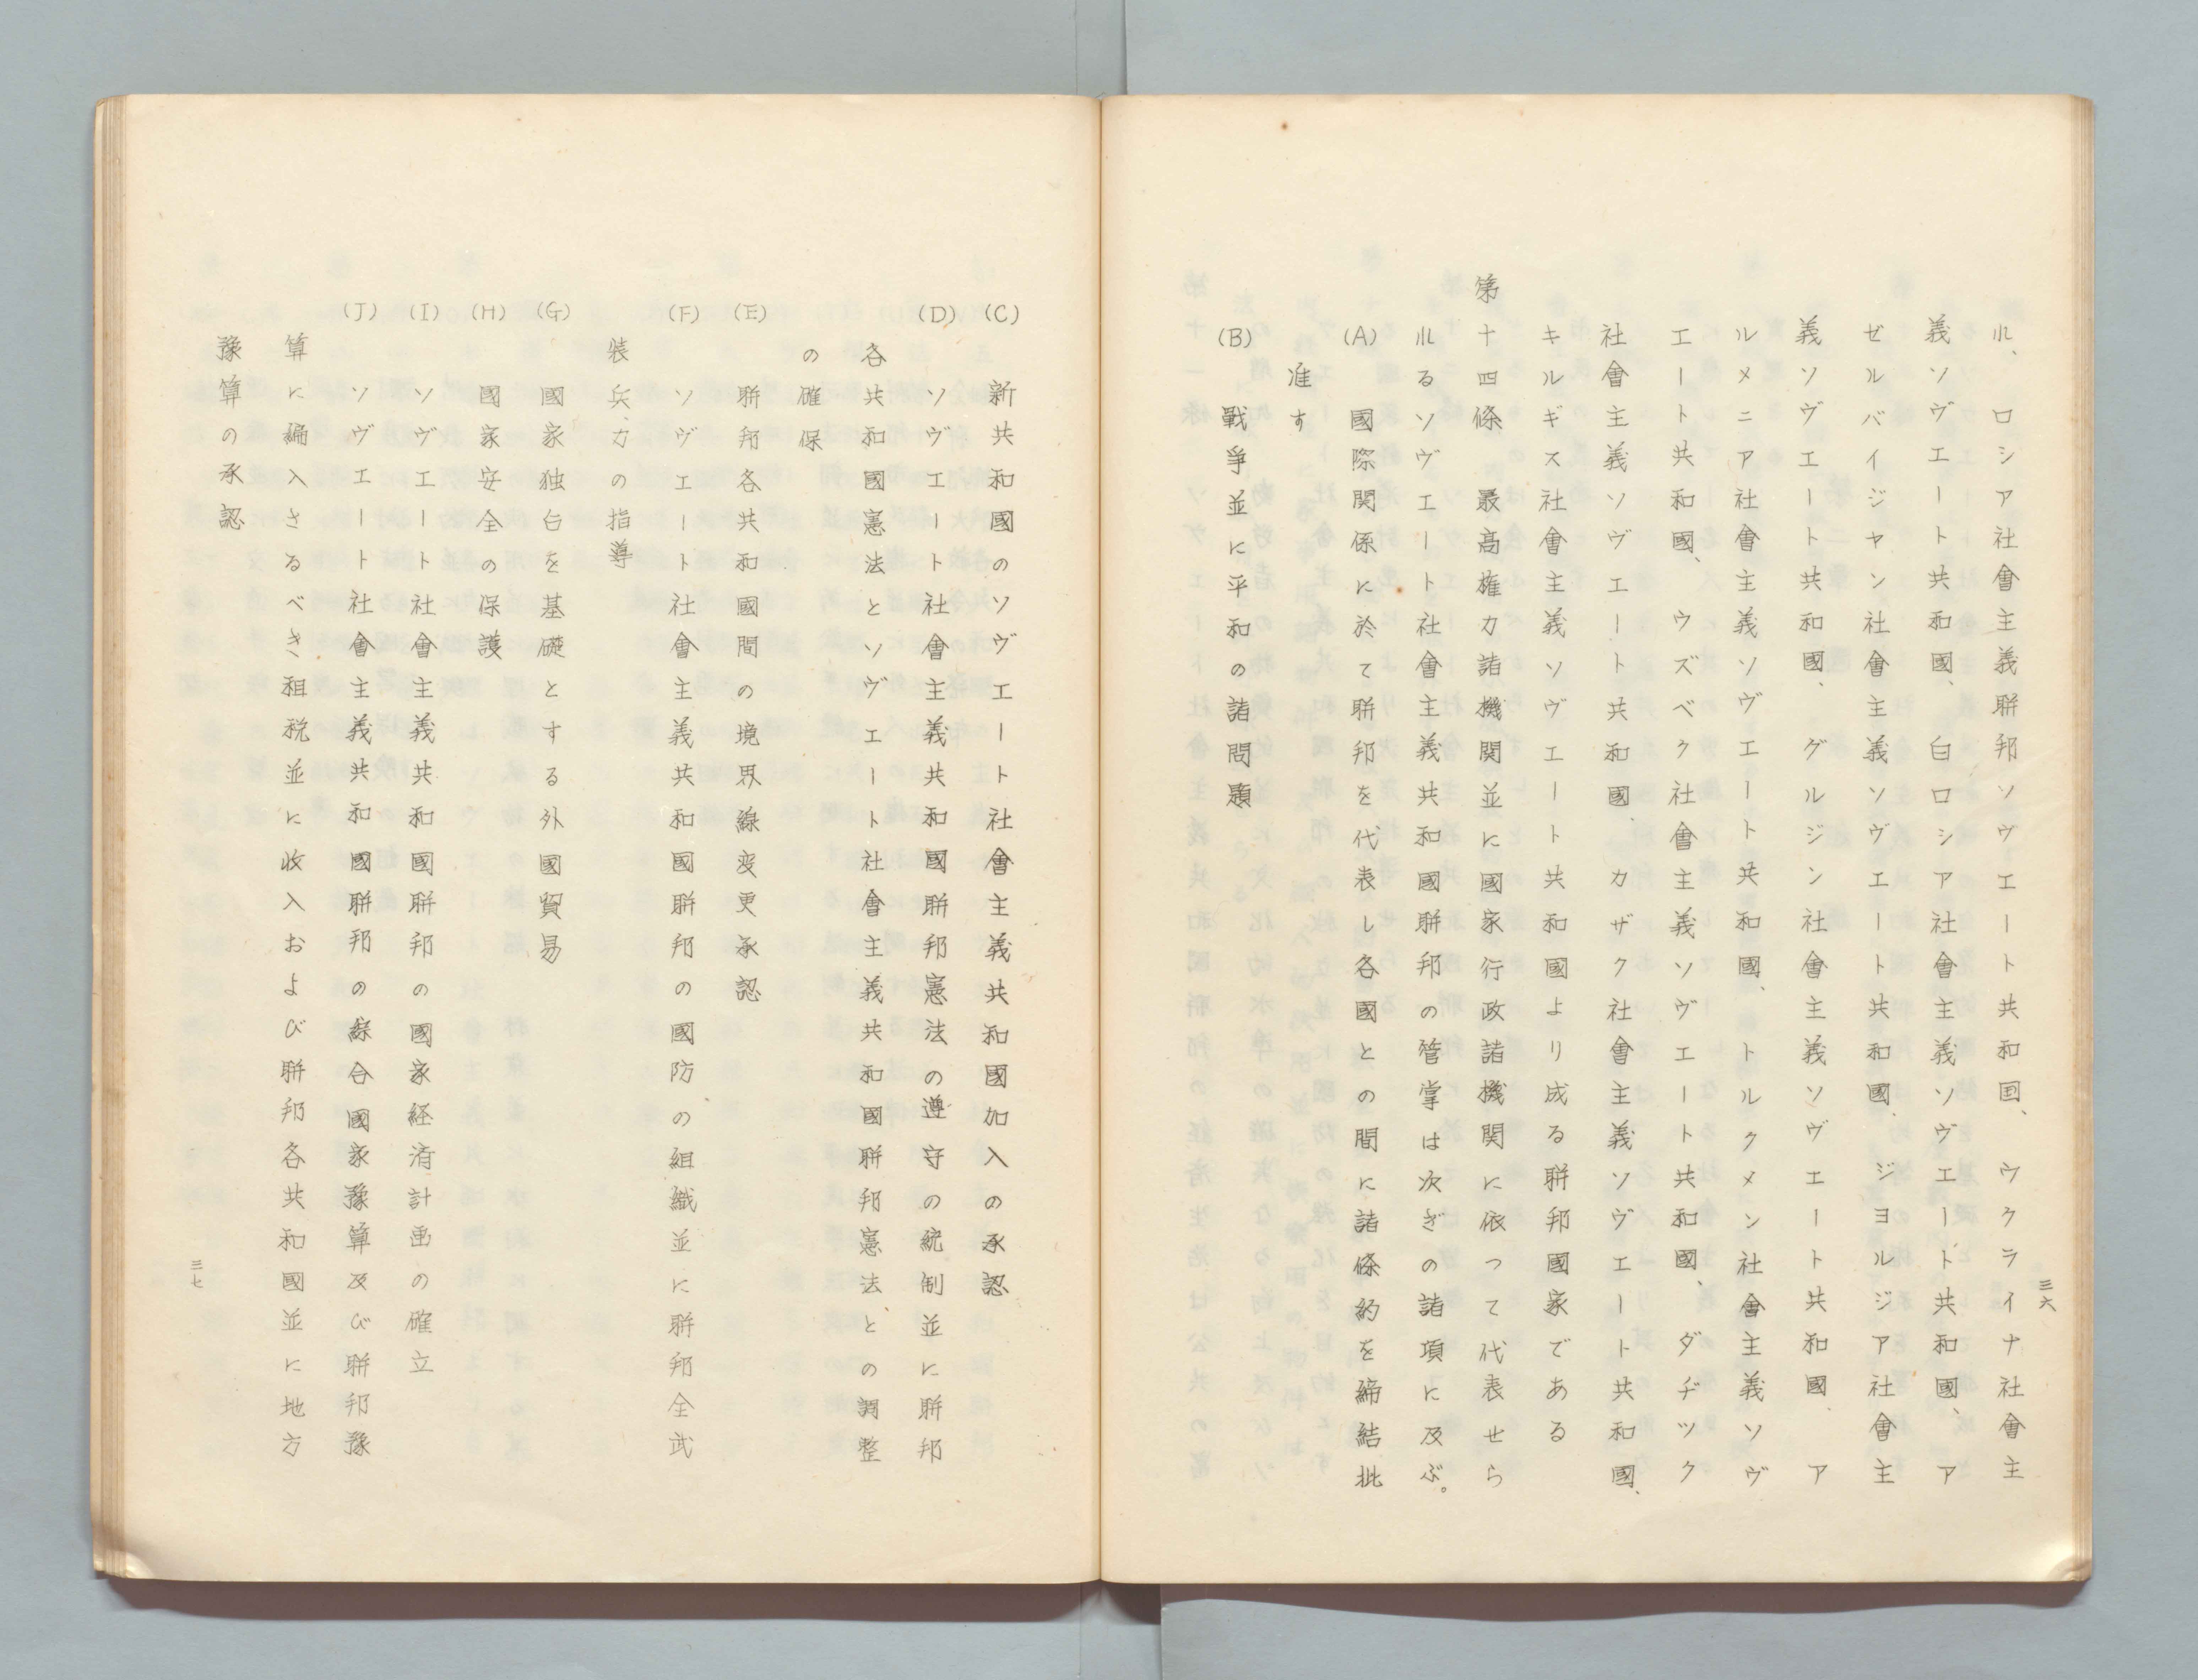 三六
ル、ロシア社會主義聯邦ソヴエート共和国、ウクライナ社會主
義ソヴエート共和國、白ロシア社會主義ソヴエート共和國、ア
ゼルバイジヤン社會主義ソヴエート共和國、ジヨルジア社會主
義ソヴエート共和國、グルジン社會主義ソヴエート共和國、ア
ルメニア社會主義ソヴエート共和國、トルクメン社會主義ソヴ
エート共和國、ウズベク社會主義ソヴエート共和國、ダヂツク
社會主義ソヴエート共和國、カザク社會主義ソヴエート共和國、
キルギス社會主義ソヴエート共和國より成る聯邦國家である
第十四條 最高権力諸機関並に國家行政諸機関に依つて代表せら
ルるソヴエート社會主義共和國聯邦の管掌は次ぎの諸項に及ぶ。
(A) 國際関係に於て聯邦を代表し各國との間に諸條約を締結批
准す
(B) 戰爭並に平和の諸問題
(C) 新共和國のソヴエート社會主義共和國加入の承認
(D) ソヴエート社會主義共和國聯邦憲法の遵守の統制並に聯邦
各共和國憲法とソヴエート社會主義共和國聯邦憲法との調整
の確保
(E) 聯邦各共和國間の境界線变更承認
(F) ソヴエート社會主義共和國聯邦の國防の組織並に聯邦全武
装兵力の指導
(G) 國家独占を基礎とする外國貿易
(H) 國家安全の保護
(I) ソヴエート社會主義共和國聯邦の國家経済計画の確立
(J) ソヴエート社會主義共和國聯邦の綜合國家豫算及び聯邦豫
算に編入さるべき租税並に收入および聯邦各共和國並に地方
豫算の承認
三七